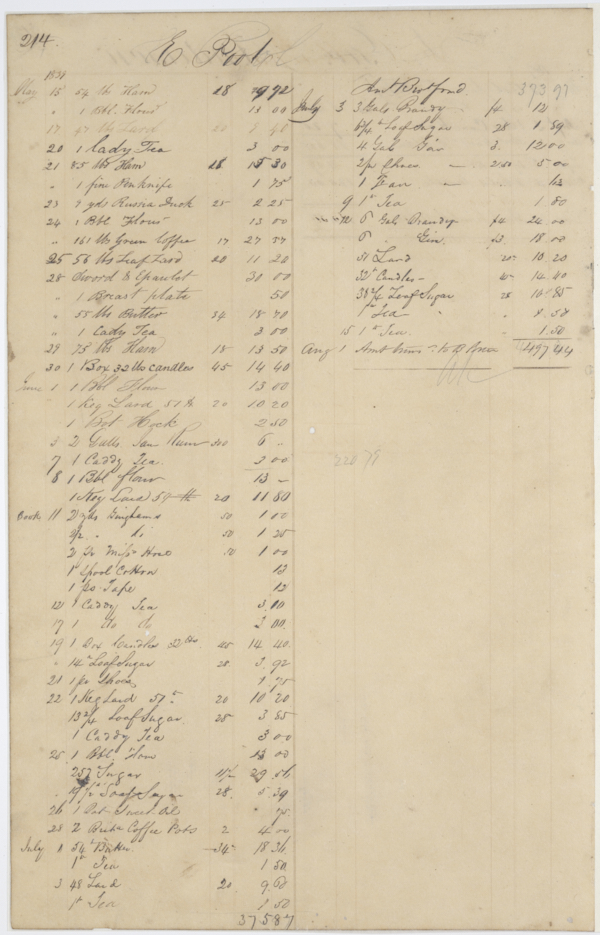 214.
E Pool
May 15 54 lbs Ham 18 9 72
" 1 Bbl Flour 13 00
17 47 lbs Lard 20 9 40
20 1 Cady Tea 3 00
21 85 lbs Ham 18 15 30
" 1 fine Penknife 1 75
23 9 yds Russia Duck 25 2 25
24 1 Bbl Flour 13 00
" 161 lbs Green Coffee 17 27 37
25 56 lbs Leaf Lard 20 11 20
28 Sword & Epaulet 30 00
" 1 Breast plate 50
" 55 lbs Butter 34 18 70
" 1 Cady Tea 3 00
29 75 lbs Ham 18 13 50
30 1 Box 32 lbs candles 45 14 40
June 1 1 Bbl Flour 13 00
1 Keg Lard 51 lb 20 10 20
1 Bot Hock 2 50
3 2 Galls Jam Rum 300 6 "
7 1 Caddy Tea 3 00
8 1 Bbl flour 13 –
1 Keg Lard 59 lb 20 11 80
11 2 yds Ginghams 50 1 00
" do 50 1 25
2 pr Hose 50 1 00
1 Spool Cotton 13
1 ps Tape 12
12 1 Caddy Tea 3 00
17 1 do do 3 00
19 1 Box Candles 32 lbs 45 14 40
" 14 " Loaf Sugar 28 3 92
21 1 pr Shoes 1 75
22 1 Keg Lard 51 " 20 10 20
13 3/4 Loaf Sugar 28 3 85
1 Caddy Tea 3 00
25 1 Bbl Flour 13 00
257 " Sugar 11½ 29 56
" 19 ¼ " Loaf Sugar 28 5 39
26 1 Bot Sweet Oil 75
28 2 Coffee Pots 2 4 00
July 1 54 " Butter 34 18 36
1 " Tea 1 50
3 48 Lard 20 9 60
1 " Tea 1 50
375 87
Amt Brot forwd 375 87
July 3 3 Gals Brandy f4 12
Loaf Sugar 28 1 89
4 Gals Gin 3 12 00
2 pr Shoes 2.50 5 00
9 1 " Tea 1 50
12 6 Gals Brandy f4 24 00
6 " Gin f3 18 00
51 Lard 20 10 20
32 " Candles 45 14 40
38 3/4 Loaf Sugar 28 10 85
1 " Tea "
15 1 " Tea 1 50
Aug 1 497 44